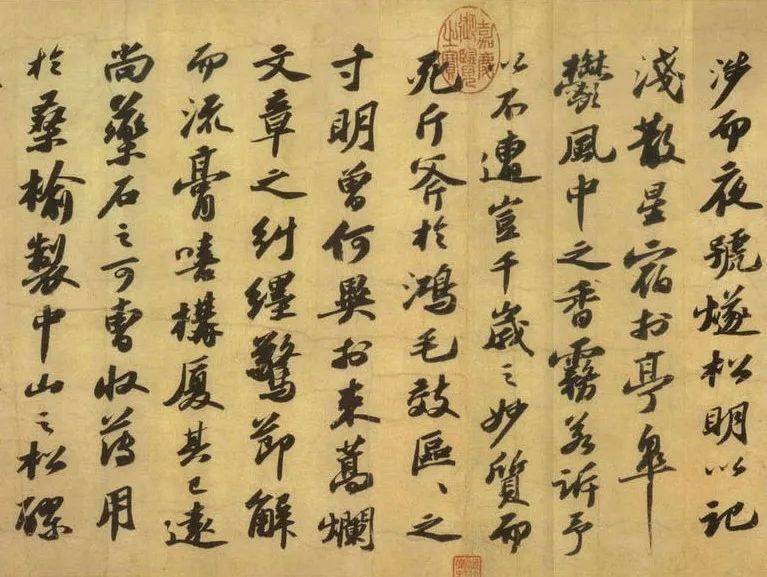 涉而夜號燧松明以記
淺散星宿於亭皋
鬱風中之香霧若訴予
以不遭豈千歲之妙質而
死斤斧於鴻毛效區〻之
寸明曾何異於束蒿爛
文章之糾纏驚節解
而流膏嘻構厦其已遠
尚藥石之可曹收薄用
於桑榆製中山之松醪
嘉慶御覽之寶